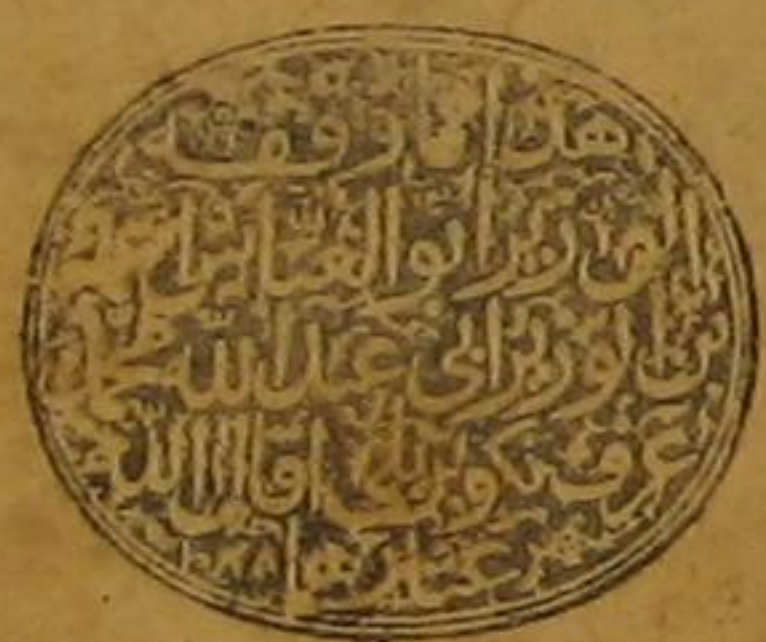 هذا ما وقفه
الوزير ابو العباس احمد
بن الوزير ابي عبد الله محمد
عرف بكوبريلى اقال الله
عثارهما ١٠٨٨